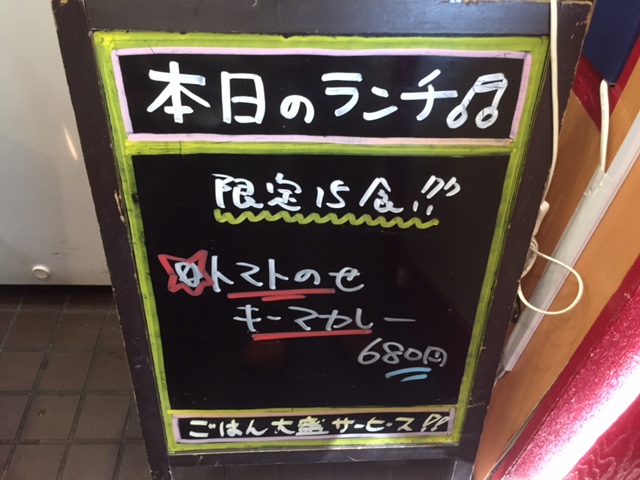 本日のランチ♫
限定15食!!
☆トマトのせ
キーマカレー
680円
ごはん大盛サービス!!